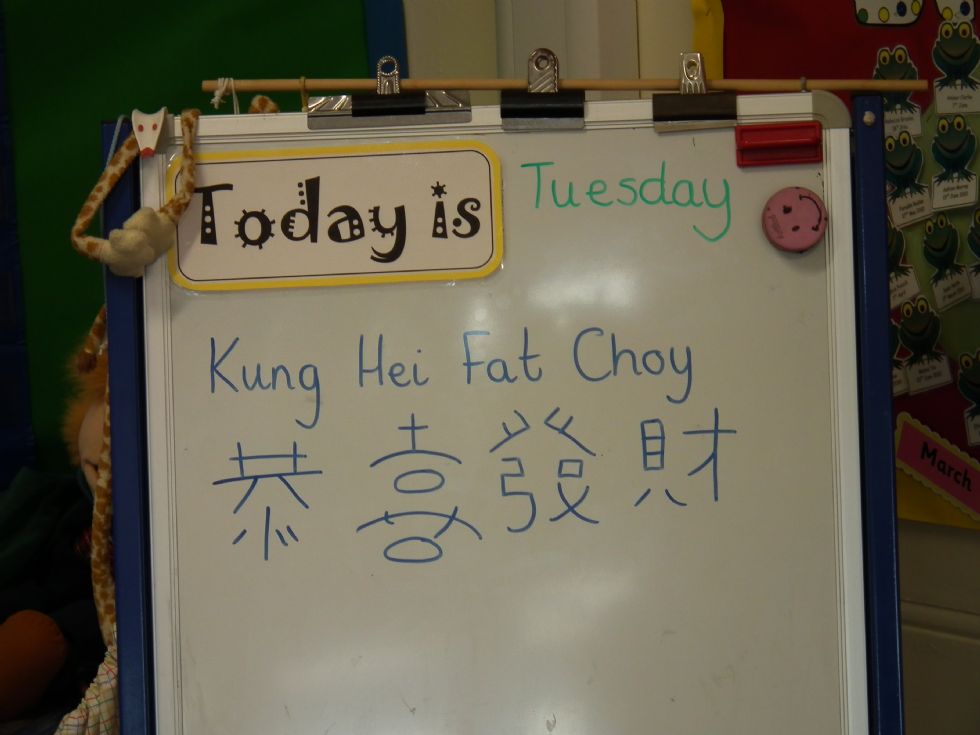 Today is Tuesday
Kung Hei Fat Choy
恭喜發財
March